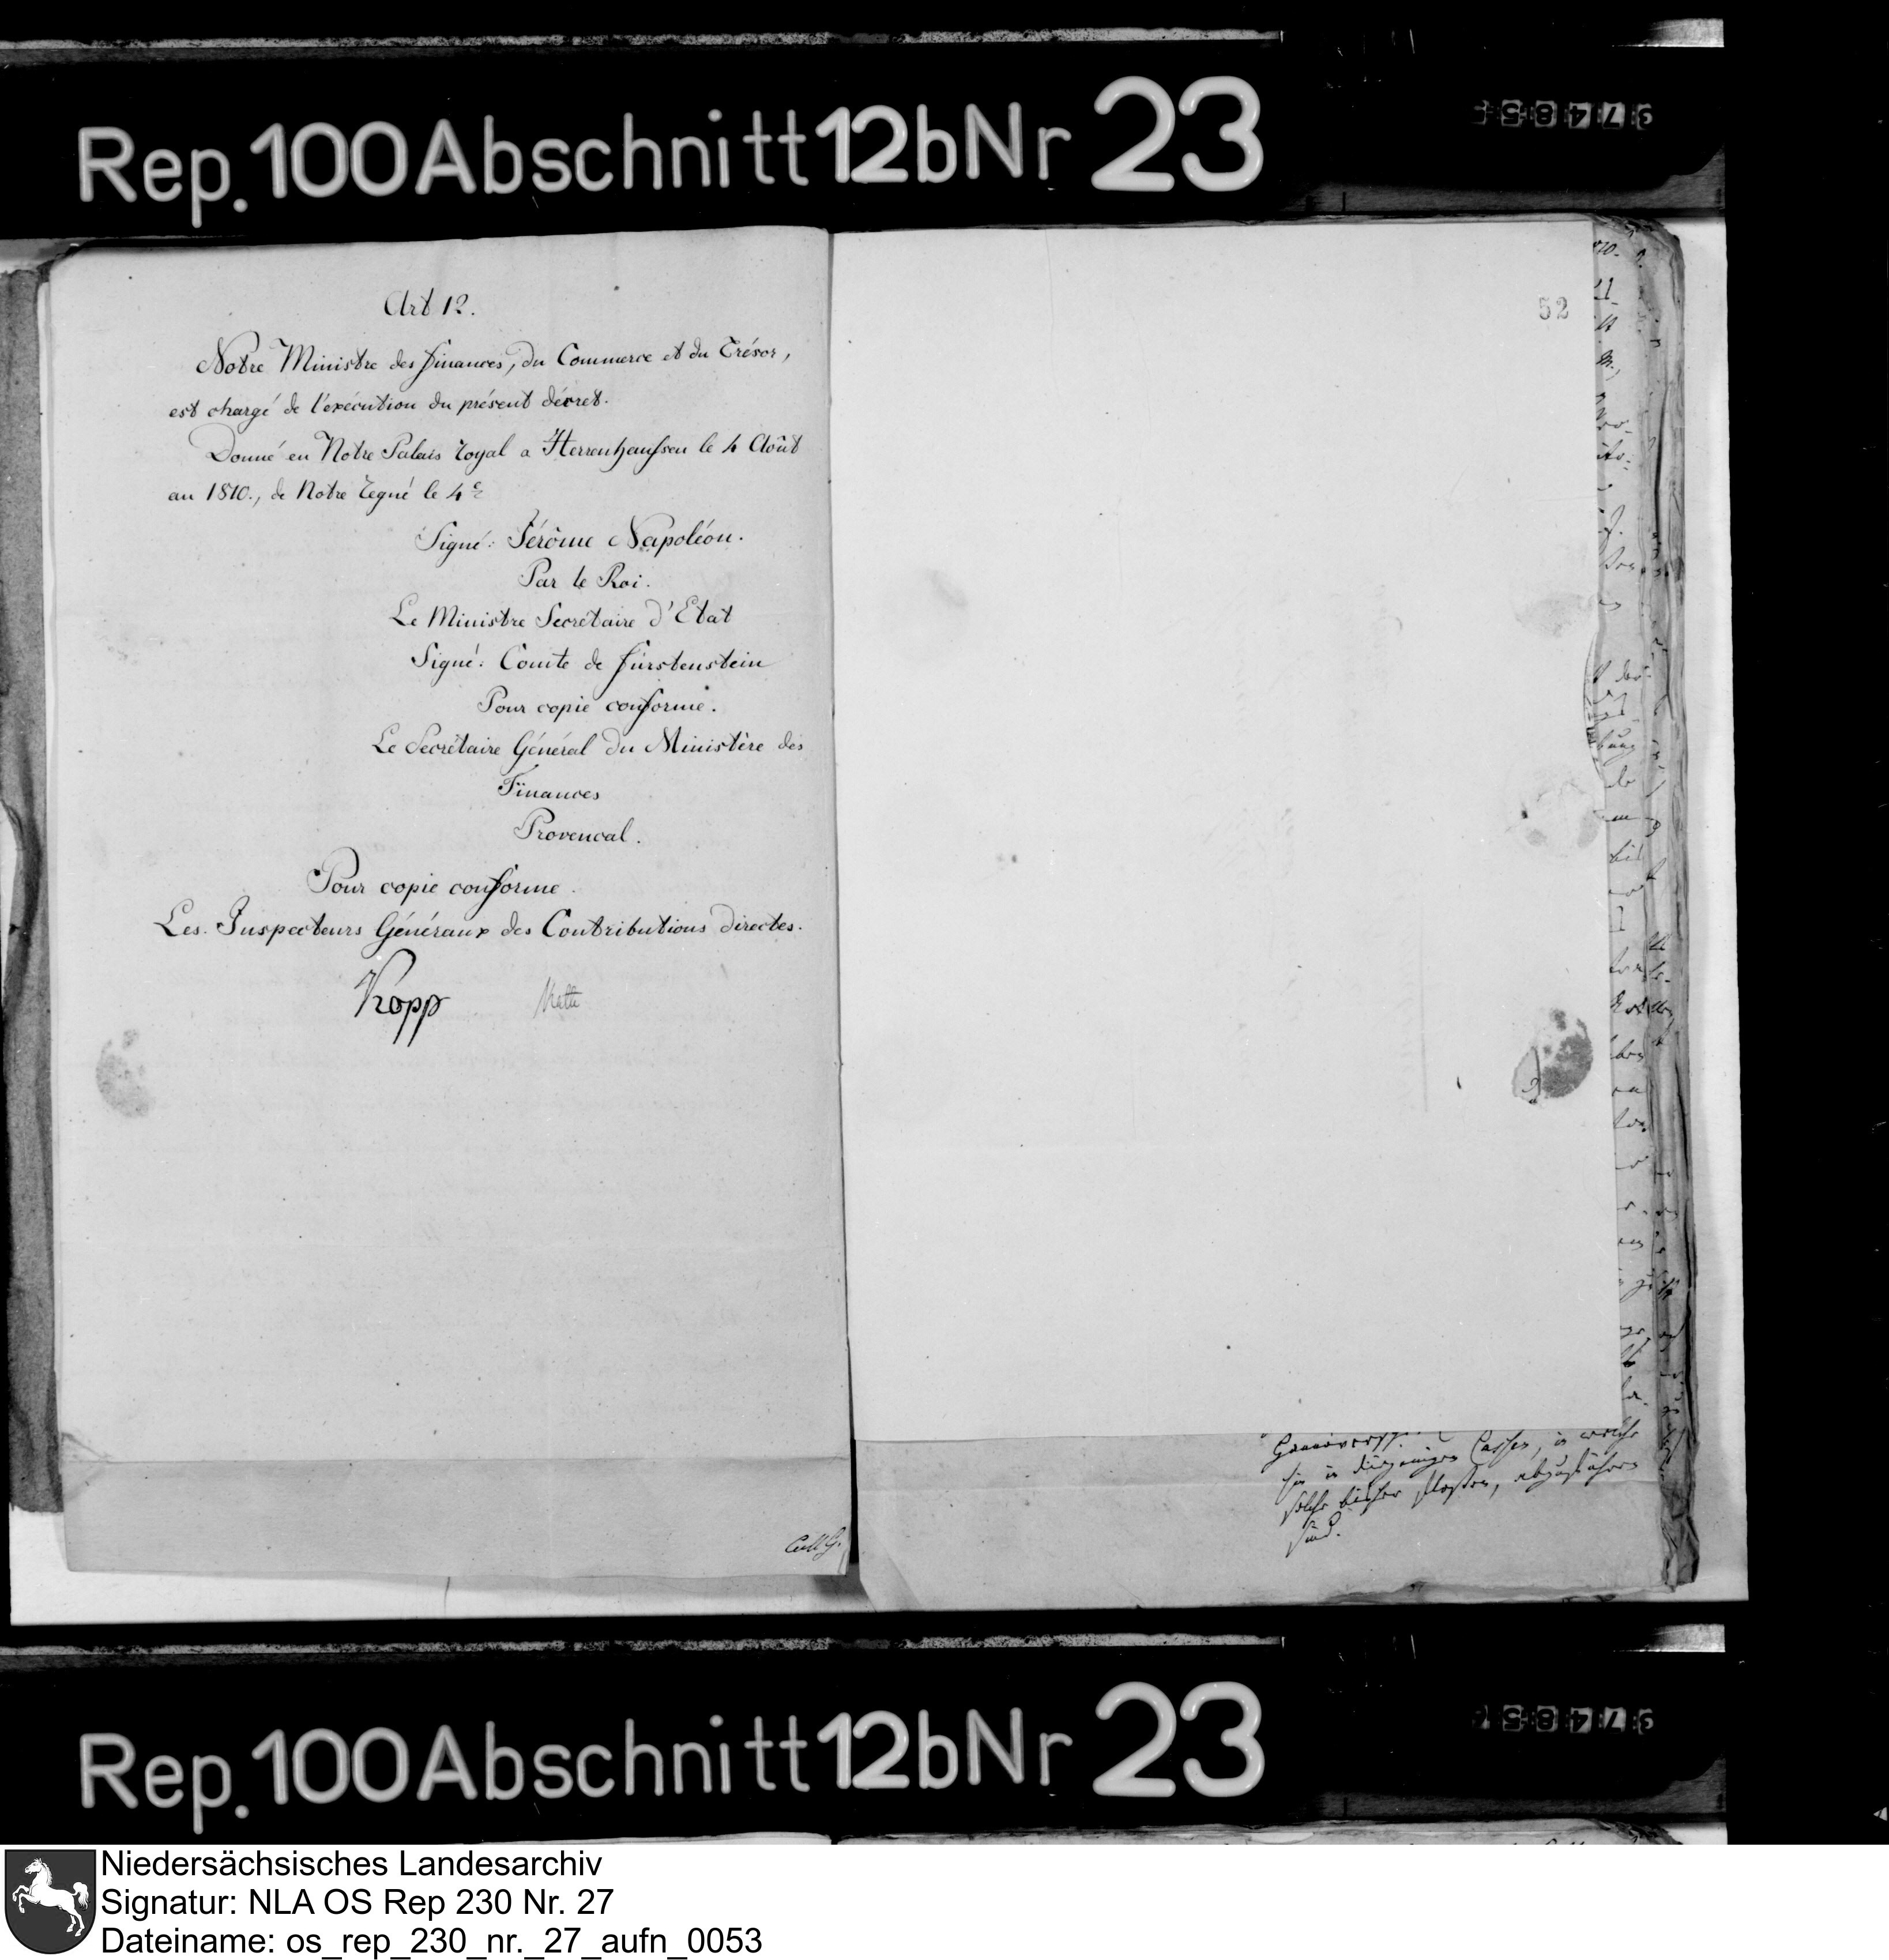 Rep. 100 Abschnitt 12b Nr 23
Art 12.
Notre Ministre des finances, du Commerce et du Trésor,
est chargé de l'exécution du présent décret.
Donné en Notre Palais royal a Herrenhaussen le 4 Août
an 1810., de Notre regné le 4e
Signé: Jérôme Napoléon.
Par le Roi.
Le Ministre Secrétaire d'Etat
Signé: Comte de fürstenstein
Pour copie conforme.
Le Secrétaire Général du Ministère des
Finances
Provencal.
Pour copie conforme.
Les Inspecteurs Généraux des Contributions directes.
Kopp
52
Cassen, in welche
solche bisher
sind.
Rep. 100 Abschnitt 12b Nr 23
Niedersächsisches Landesarchiv
Signatur: NLA OS Rep 230 Nr. 27
Dateiname: os_rep_230_nr._27_aufn_0053